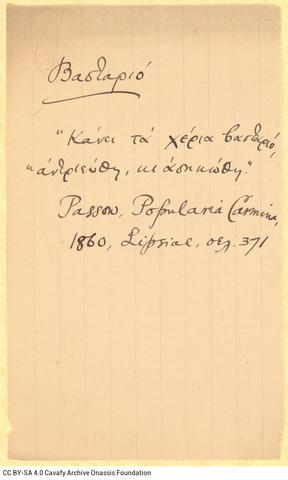 Βασταριό
"Κάνει τά χέρια βασταριό,
"ἀντριεώθη, κι ἀσηκώθη."
Passow, Popularia Carmina,
1860, Lipsiae, σελ. 371
CC BY-SA 4.0 Cavafy Archive Onassis Foundation